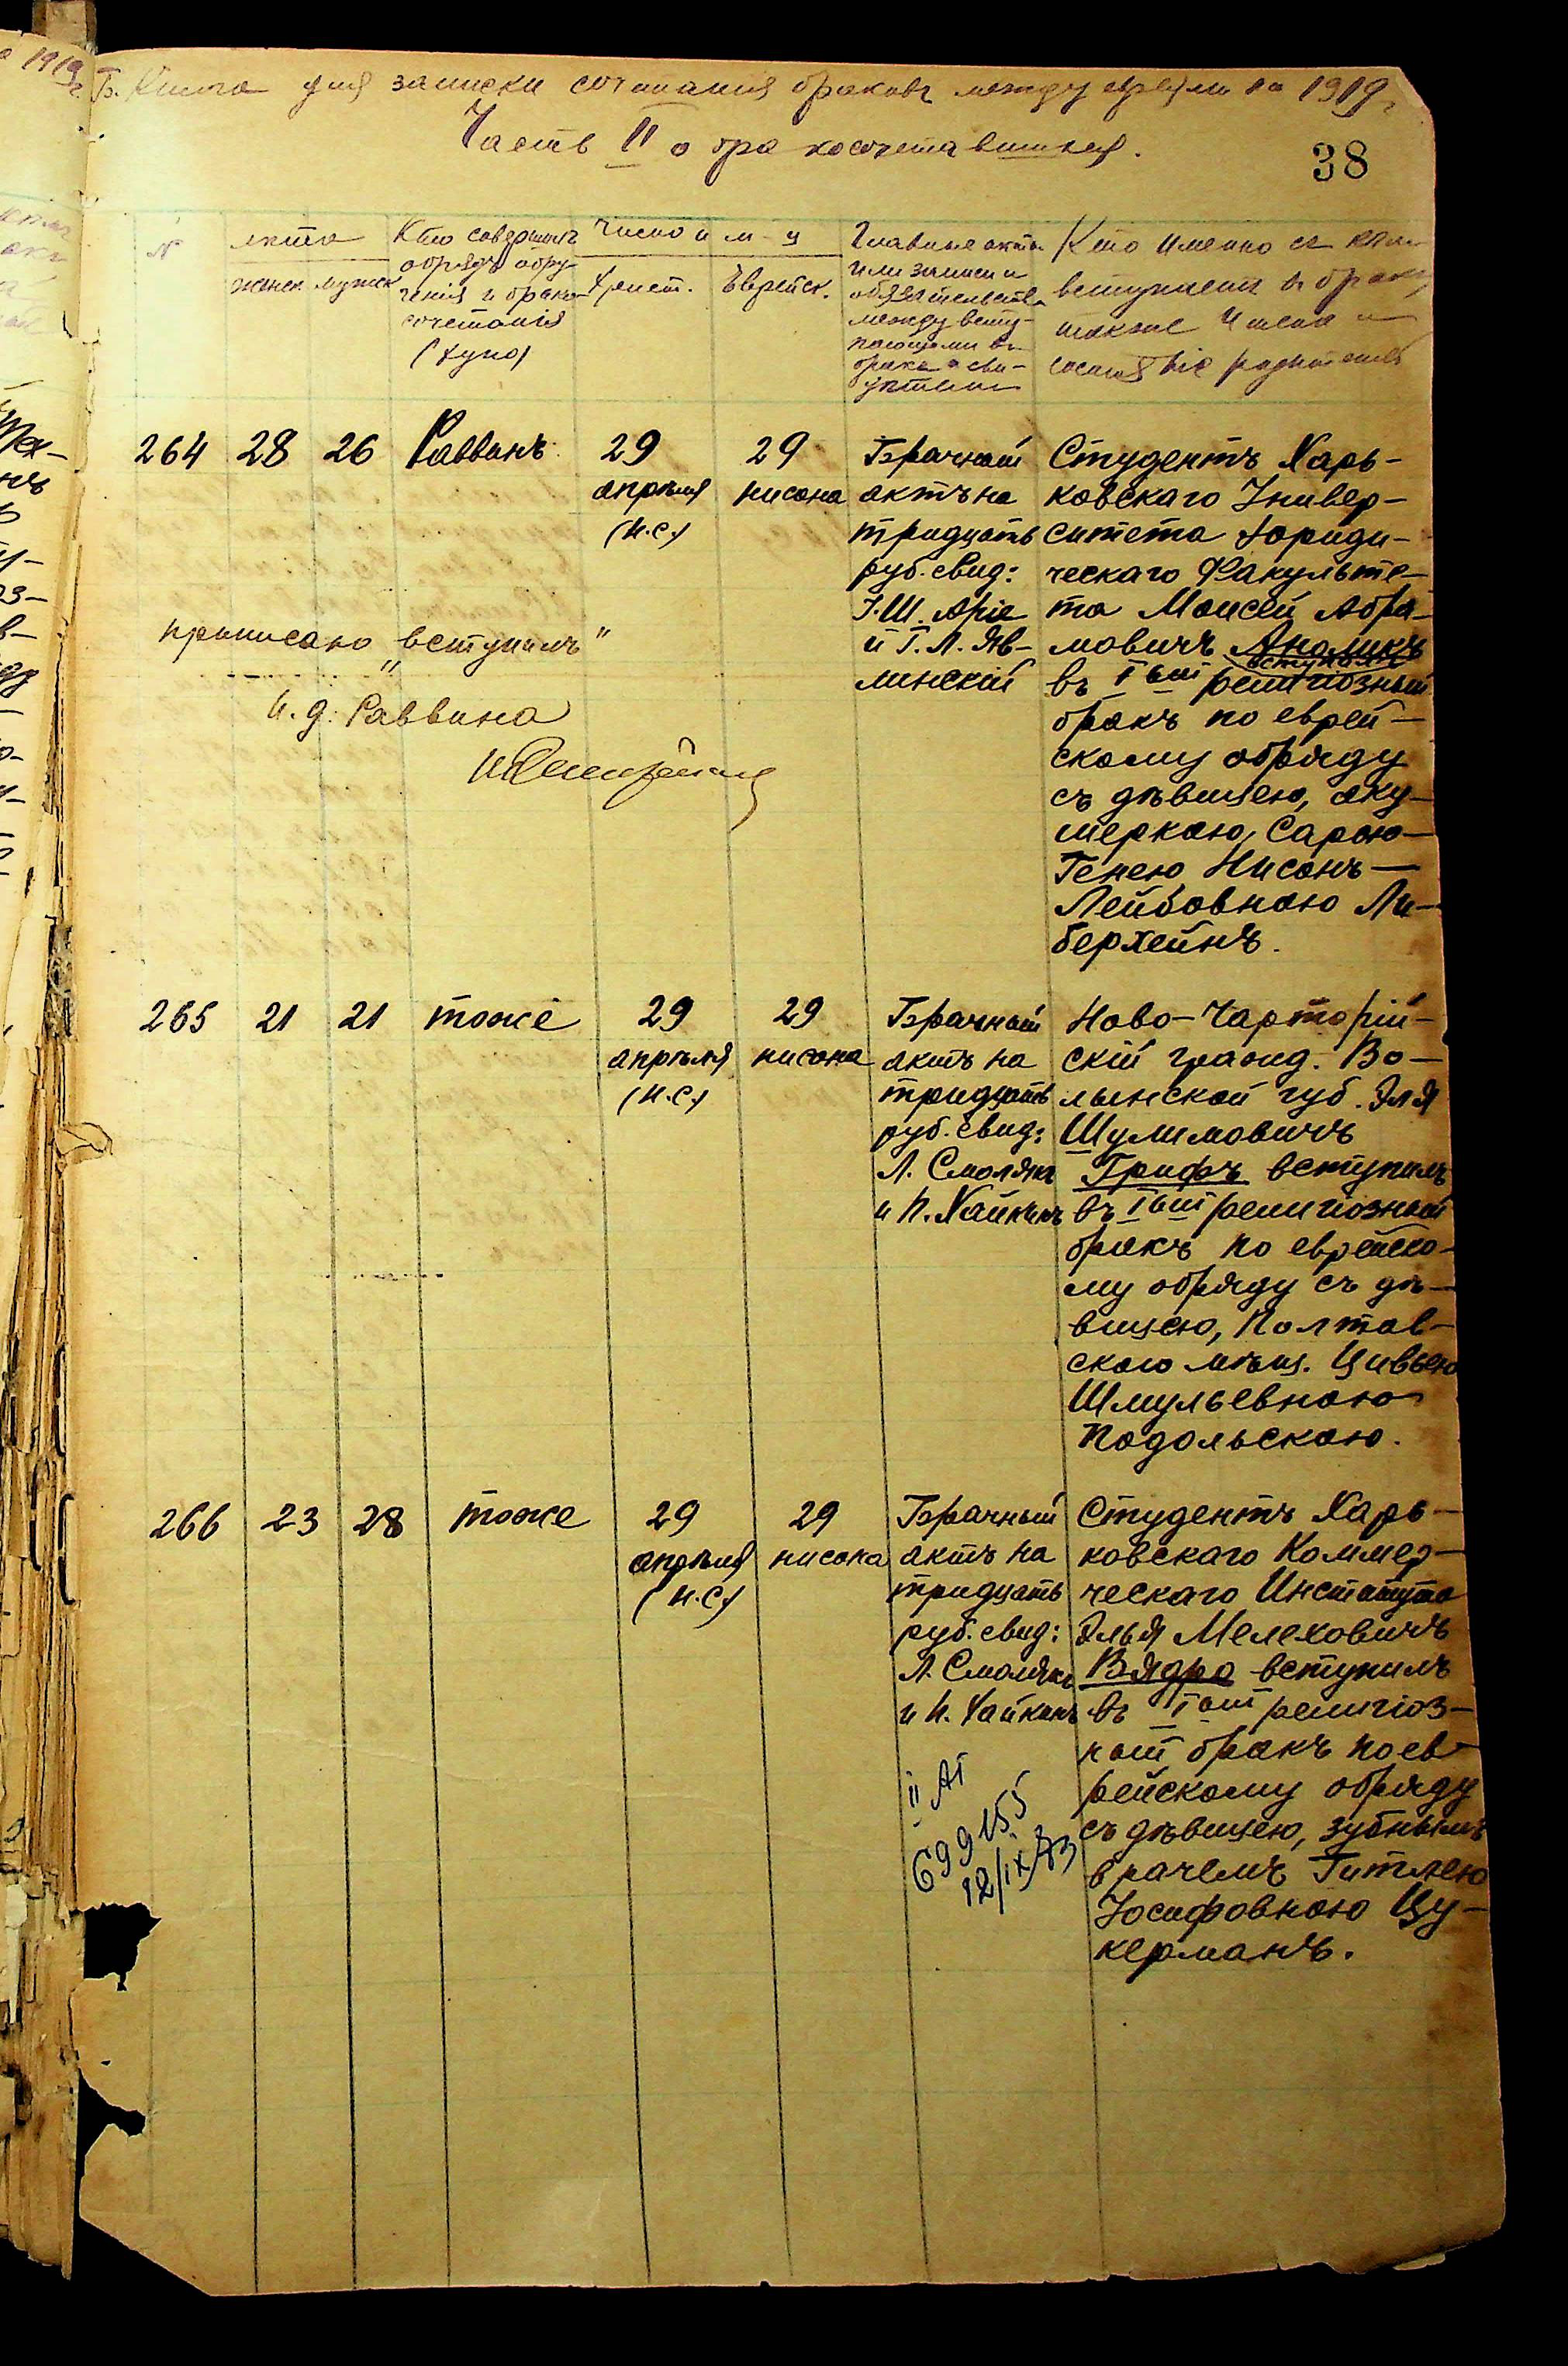 Книга для записки сочетанія браковъ между евреями на 1919 г.
Часть II о бракосочетавшихся.
38
№
лѣта
женск. мужск.
Кто совершалъ
обрядъ обру-
ченія и брако-
сочетанія
(хупо)
Число и м-ц
Христ. Еврейск.
Главные акты
или записи и
обязательства
между всту-
пающими въ
бракъ и сви-
дѣтели
Кто именно съ кѣмъ
вступаетъ въ бракъ,
также имена и
состояніе родителей
264 28 26 Раввинъ
29
апрѣля
(н.с.)
29
нисана
Брачный
актъ на
тридцать
руб. свид:
І.Ш. Аріе
и Г. Л. Яв-
линскій
Студентъ Харь-
ковскаго Универ-
ситета Юриди-
ческаго Факульте-
та Моисей Абра-
мовичъ Аналикъ
вступилъ
въ Iый религіозный
бракъ по еврей-
скому обряду
съ дѣвицею, аку-
шеркою, Сарою-
Генею Нисонъ-
Лейбовною Ли-
берхейнъ.
приписано "вступилъ"
И. д. Раввина
265 21 21 тоже
29
апрѣля
(н.с.)
29
нисана
Брачный
актъ на
тридцать
руб. свид:
Л. Смолякъ
и Н. Хайкинъ
Ново-Чарторій-
скій гражд. Во-
лынской губ. Эля
Шулимовичъ
Грифъ вступилъ
въ Iый религіозный
бракъ по еврейско-
му обряду съ дѣ-
вицею, Полтав-
скою мѣщ. Цивьею
Шмульевною
Подольскою.
266 23 28 тоже
29
апрѣля
(н.с.)
29
нисана
Брачный
актъ на
тридцать
руб. свид:
Л. Смолякъ
и Н. Хайкинъ
II АГ
699155
12/IX 73
Студентъ Харь-
ковскаго Коммер-
ческаго Института
Элья Мелеховичъ
Вядро вступилъ
въ Iый религіоз-
ный бракъ по ев-
рейскому обряду
съ дѣвицею, зубнымъ
врачемъ Гитлею
Іосифовною Цу-
керманъ.